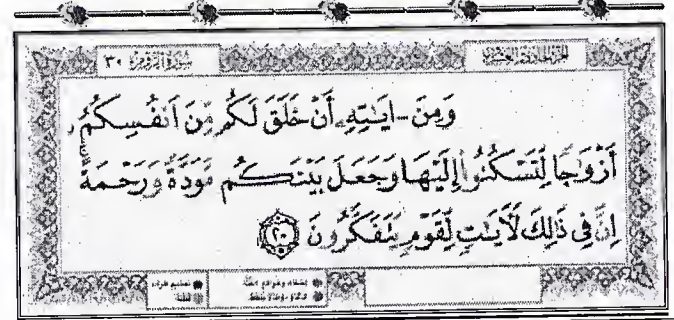 الجزء الحادي والعشرون سُورَةُ الرُّومِ ٣٠
وَمِنَ ـ ايَٰتِهِۦٓ أَنْ خَلَقَ لَكُم مِّنَ اَنفُسِكُمُۥٓ
أَزْوَٰجًا لِّتَسْكُنُوٓا۟ إِلَيْهَا وَجَعَلَ بَيْنَكُم مَّوَدَّةً وَرَحْمَةً
اِنَّ فِى ذَٰلِكَ لَأٓيَٰتٍ لِّقَوْمٍ يَتَفَكَّرُونَ ٢٠